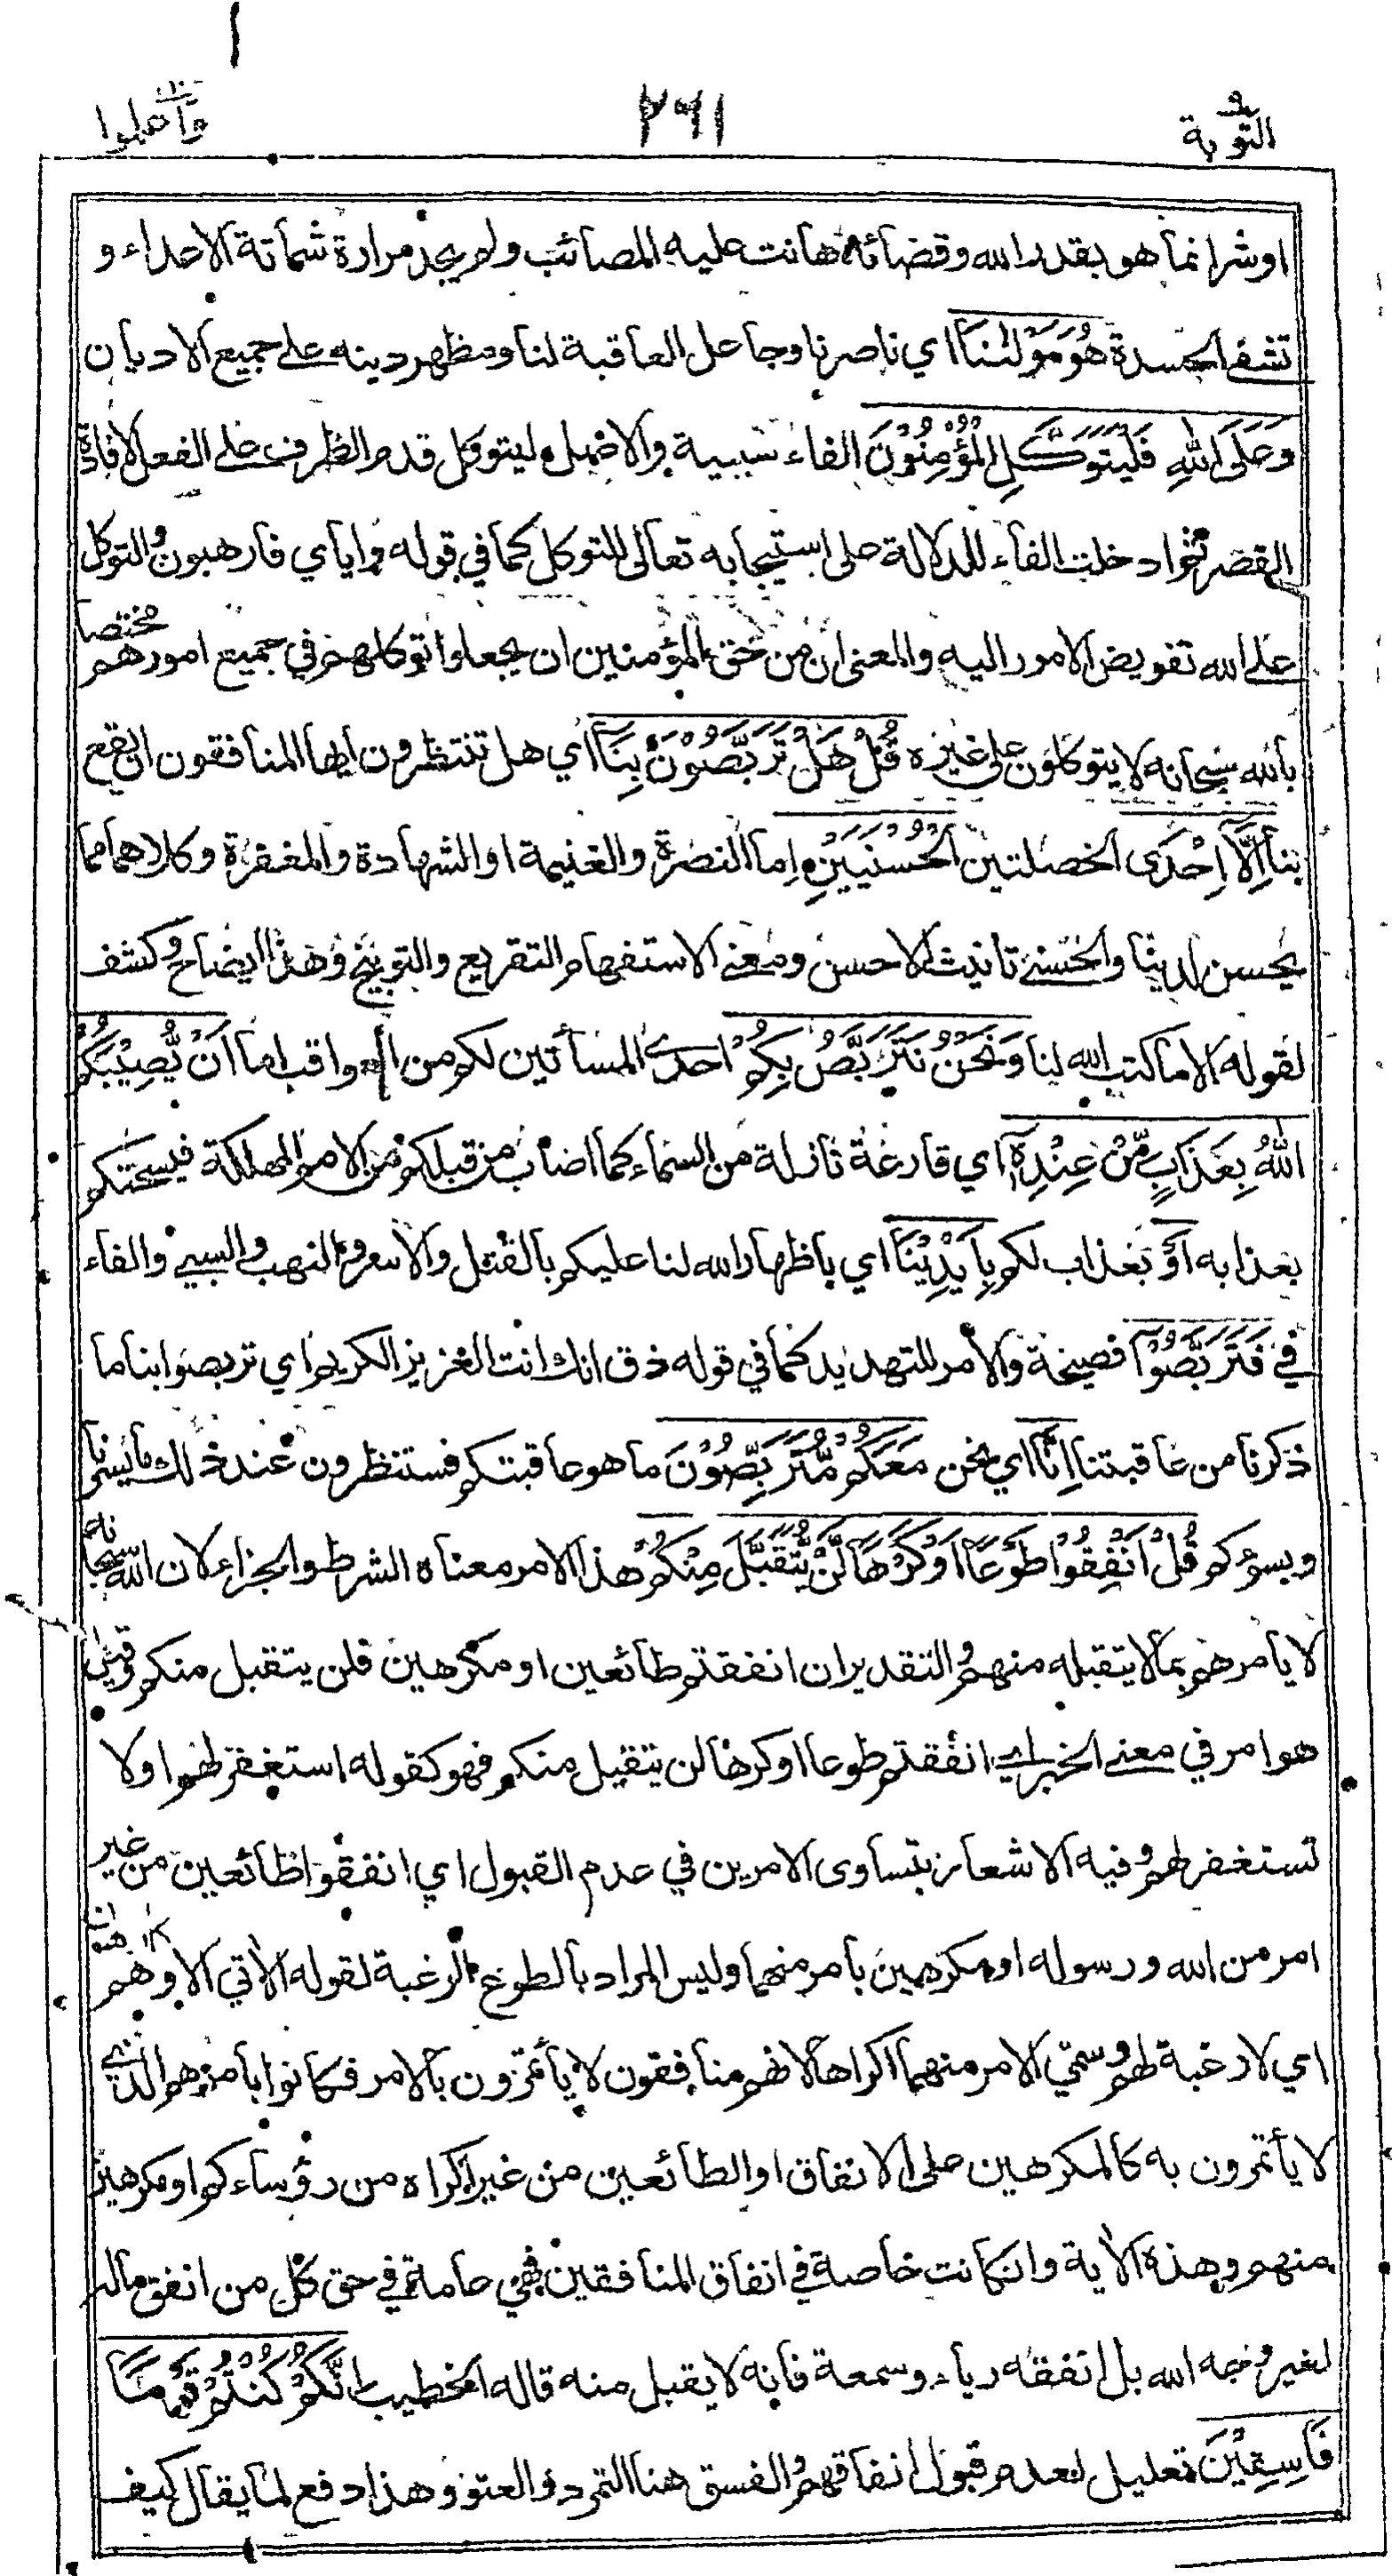 التوبة
٢٦١
واعلموا
او شر انما هو بقدر الله وقضائه هانت عليه المصائب ولم يجد مرارة شماتة الاعداء و
تشفى الحسدة هُوَ مَوْلٰىنَا اي ناصرنا وجاعل العاقبة لنا ومظهر دينه على جميع الاديان
وَعَلَى اللهِ فَلْيَتَوَكَّلِ الْمُؤْمِنُوْنَ الفاء سببية والاصل ليتوكل قدم الظرف على الفعل لافادة
القصر ثم ادخلت الفاء للدلالة على استيجابه تعالى للتوكل كما في قوله واياي فارهبون والتوكل
على الله تفويض الامور اليه والمعنى ان من حق المؤمنين ان يجعلوا توكلهم في جميع امورهم مختصا
بالله سبحانه لا يتوكلون على غيره قُلْ هَلْ تَرَبَّصُوْنَ بِنَآ اي هل تنتظرون ايها المنافقون ان يقع
بنا اِلَّآ اِحْدَى الخصلتين الْحُسْنَيَيْنِ اما النصرة والغنيمة او الشهادة والمغفرة وكلاهما مما
يحسن لدينا والحسنى تانيث الاحسن ومعنى الاستفهام التقريع والتوبيخ وهذا ايضاح وكشف
لقوله الا ما كتب الله لنا وَنَحْنُ نَتَرَبَّصُ بِكُمْ احدى المسأتين لكم من العواقب اما اَنْ يُّصِيْبَكُمُ
اللهُ بِعَذَابٍ مِّنْ عِنْدِهٖٓ اي قارعة نازلة من السماء كما اصاب من قبلكم من الامم المهلكة فيسحتكم
بعذابه اَوْ بعذاب لكم بِاَيْدِيْنَا اي باظهار الله لنا عليكم بالقتل والاسر والنهب والسبي والفاء
في فَتَرَبَّصُوْٓا فصيحة والامر للتهديد كما في قوله ذق انك انت العزيز الكريم اي تربصوا بنا ما
ذكرنا من عاقبتنا اِنَّا اي نحن مَعَكُمْ مُّتَرَبِّصُوْنَ ما هو عاقبتكم فستنظرون عند ذلك ما يسرنا
ويسؤكم قُلْ اَنْفِقُوْا طَوْعًا اَوْ كَرْهًا لَّنْ يُّتَقَبَّلَ مِنْكُمْ هذا الامر معناه الشرط والجزاء لان الله سبحانه
لا يأمرهم بما لا يتقبله منهم والتقدير ان انفقتم طائعين او مكرهين فلن يتقبل منكم وقيل
هو امر في معنى الخبر اي انفقتم طوعا او كرها لن يتقبل منكم فهو كقوله استغفر لهم او لا
تستغفر لهم وفيه الاشعار بتساوى الامرين في عدم القبول اي انفقوا طائعين من غير
امر من الله ورسوله او مكرهين بأمر منهما وليس المراد بالطوع الرغبة لقوله الاتي الا وهم كارهون
اي لا رغبة لهم وسمي الامر منهما اكراها لانهم منافقون لا يأتمرون بالامر فكانوا بأمرهم الذي
لا يأتمرون به كالمكرهين على الانفاق او الطائعين من غير اكراه من رؤساءكم او مكرهين
منهم وهذه الاية وان كانت خاصة في انفاق المنافقين فهي عامة في حق كل من انفق ماله
لغير وجه الله بل انفقه رياء وسمعة فانه لا يقبل منه قاله الخطيب اِنَّكُمْ كُنْتُمْ قَوْمًا
فَاسِقِيْنَ تعليل لعدم قبول انفاقهم والفسق هنا التمرد والعتو وهذا دفع لما يقال كيف